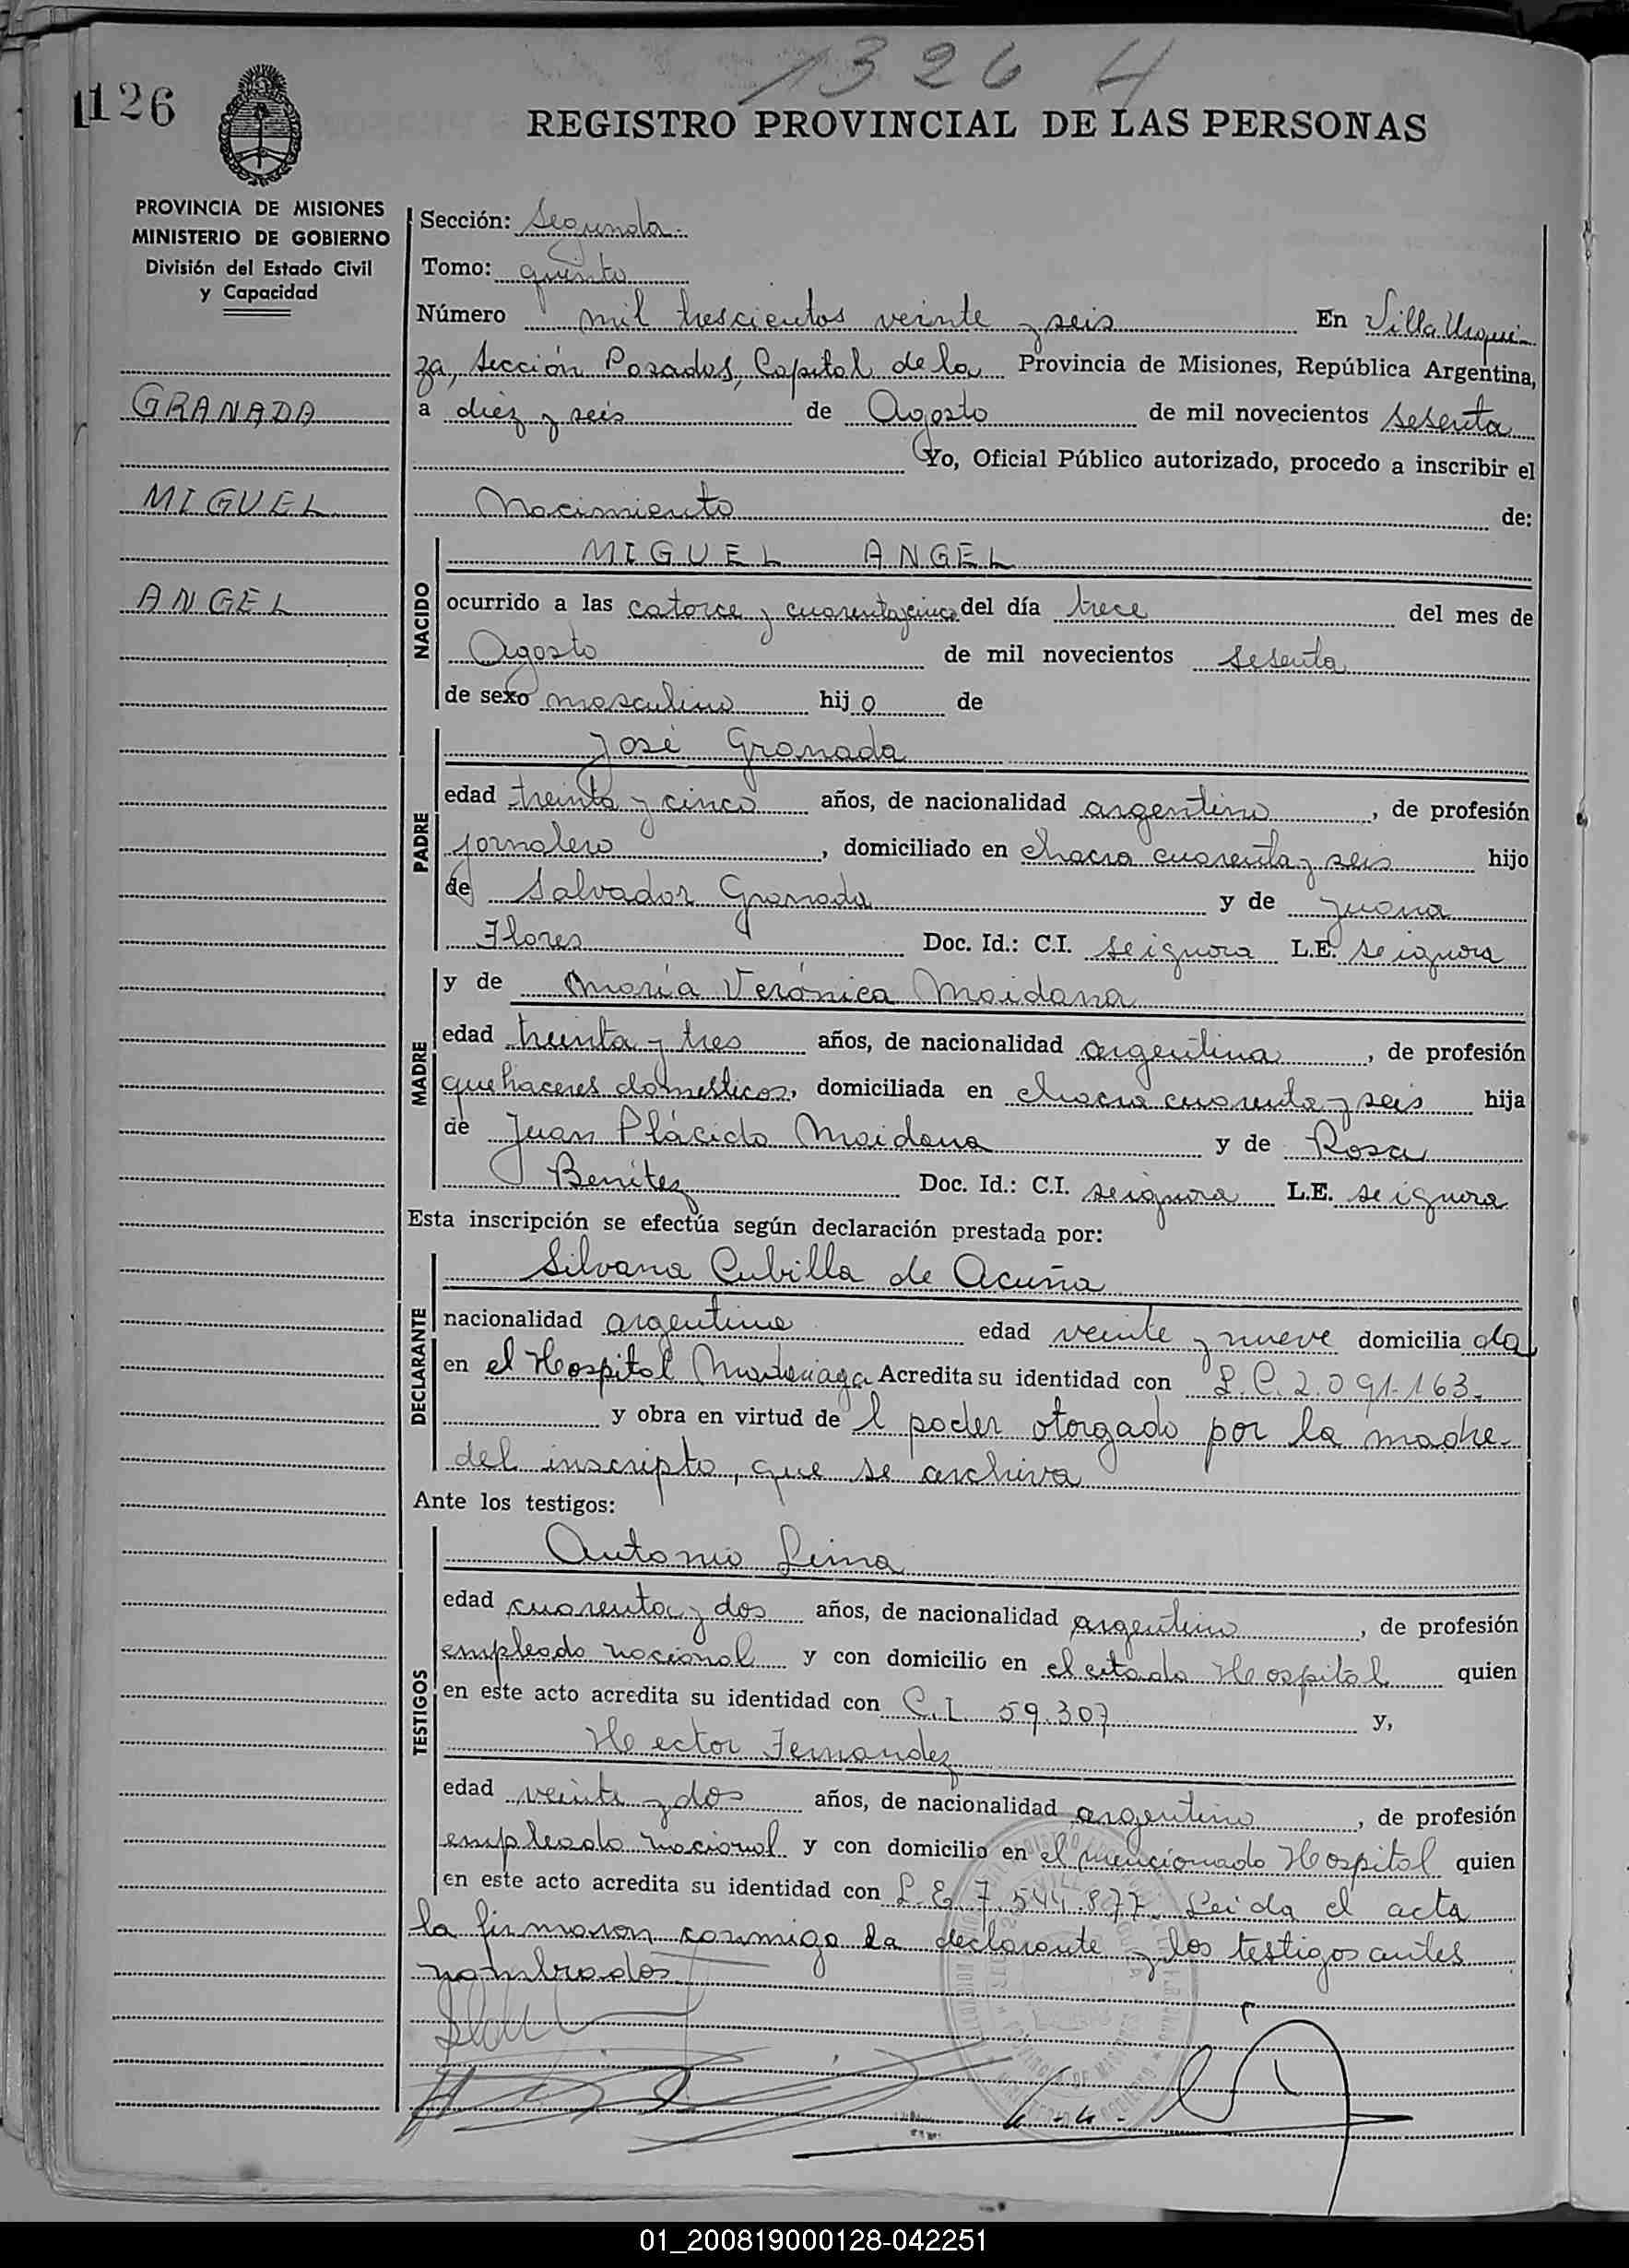 1326 H
126
REGISTRO PROVINCIAL DE LAS PERSONAS
PROVINCIA DE MISIONES
MINISTERIO DE GOBIERNO
División del Estado Civil
y Capacidad
GRANADA
MIGUEL
ANGEL
Sección: Segunda.
Tomo: quinto
Número mil trescientos veinte y seis En Villa Urqui-
za, Sección Posadas, Capital de la Provincia de Misiones, República Argentina,
a diez y seis de Agosto de mil novecientos sesenta
Yo, Oficial Público autorizado, procedo a inscribir el
Nacimiento de:
NACIDO
MIGUEL ANGEL
ocurrido a las catorce y cuarenta y cinco del día trece del mes de
Agosto de mil novecientos sesenta
de sexo masculino hijo de
PADRE
José Granada
edad treinta y cinco años, de nacionalidad argentino, de profesión
jornalero, domiciliado en chacra cuarenta y seis hijo
de Salvador Granada y de Juana
Flores Doc. Id.: C.I. se ignora L.E. se ignora
MADRE
y de María Verónica Maidana
edad treinta y tres años, de nacionalidad argentina, de profesión
quehaceres domesticos, domiciliada en chacra cuarenta y seis hija
de Juan Plácido Maidana y de Rosa
Benítez Doc. Id.: C.I. se ignora L.E. se ignora
Esta inscripción se efectúa según declaración prestada por:
DECLARANTE
Silvana Cubilla de Acuña
nacionalidad argentina edad veinte y nueve domiciliada
en el Hospital Madariaga Acredita su identidad con L.C. 2.091.163.
y obra en virtud del poder otorgado por la madre
del inscripto, que se archiva
Ante los testigos:
TESTIGOS
Antonio Lima
edad cuarenta y dos años, de nacionalidad argentino, de profesión
empleado nacional y con domicilio en el citado Hospital quien
en este acto acredita su identidad con C.I. 59.307 y,
Hector Fernandez
edad veinte y dos años, de nacionalidad argentino, de profesión
empleado nacional y con domicilio en el mencionado Hospital quien
en este acto acredita su identidad con L.E. 7.544.877. Leida el acta
la firmaron conmigo la declarante y los testigos antes
nombrados
01_200819000128-042251